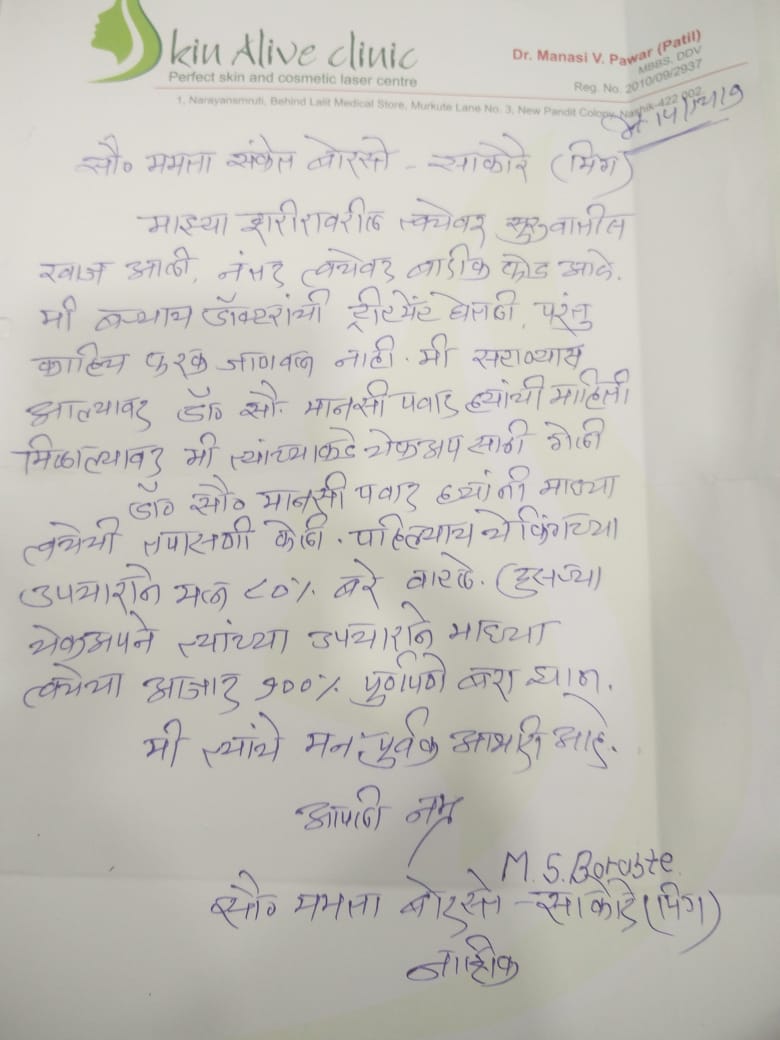 Skin Alive clinic
Perfect skin and cosmetic laser centre
Dr. Manasi V. Pawar (Patil)
MBBS, DDV
Reg. No. 2010/09/2937
1, Narayansmruti, Behind Lalit Medical Store, Murkute Lane No. 3, New Pandit Colony, Nashik-422 002
सौ० ममता संकेत बोरस्ते - साकोरे (मिग)
माझ्या शरीरावरील त्वचेवर सुरुवातीस
खाज आली, नंतर त्वचेवर बारीक फोड आले.
मी बऱ्याच डॉक्टरांची ट्रीटमेंट घेतली, परंतु
काहिच फरक जाणवला नाही. मी
आल्यावर डॉ० सौ. मानसी पवार ह्यांची माहिती
मिळाल्यावर मी त्यांच्याकडे चेकअप साठी गेली
डॉ० सौ० मानसी पवार ह्यांनी माझ्या
त्वचेची तपासणी केली. पहिल्याच चेकिंगच्या
उपचाराने मला ८०% बरे वाटले. दुसऱ्या
चेकअपने त्यांच्या उपचाराने माझ्या
त्वचेचा आजार १००% पुर्णपणे बरा झाला.
मी त्यांचे मनःपुर्वक आभारी आहे.
आपली नम्र
M. S. Boraste
सौ० ममता बोरस्ते - साकोरे (मिग)
नाशिक